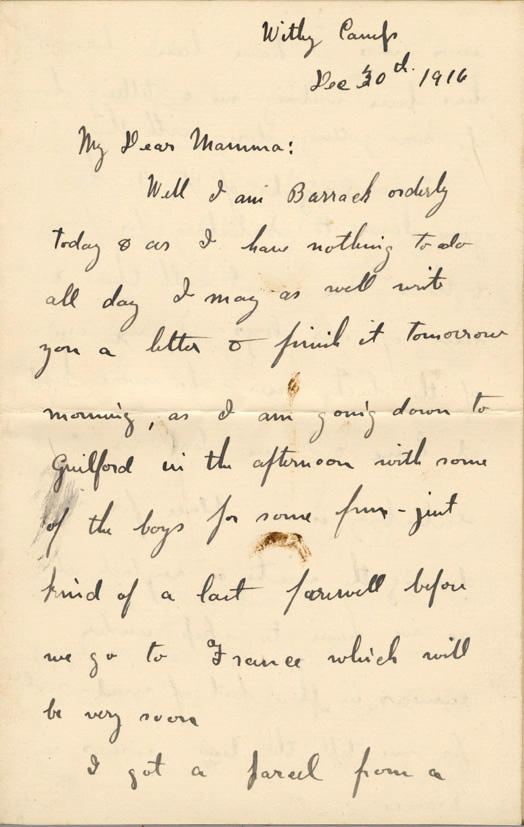 Withy Camp
Dec 30th 1916
My Dear Mamma:
Well I am Barrack orderly
today & as I have nothing to do
all day I may as well write
you a letter & finish it tomorrow
morning, as I am going down to
Guilford in the afternoon with some
of the boys for some fun - just
kind of a last farewell before
we go to France which will
be very soon
I got a parcel from a